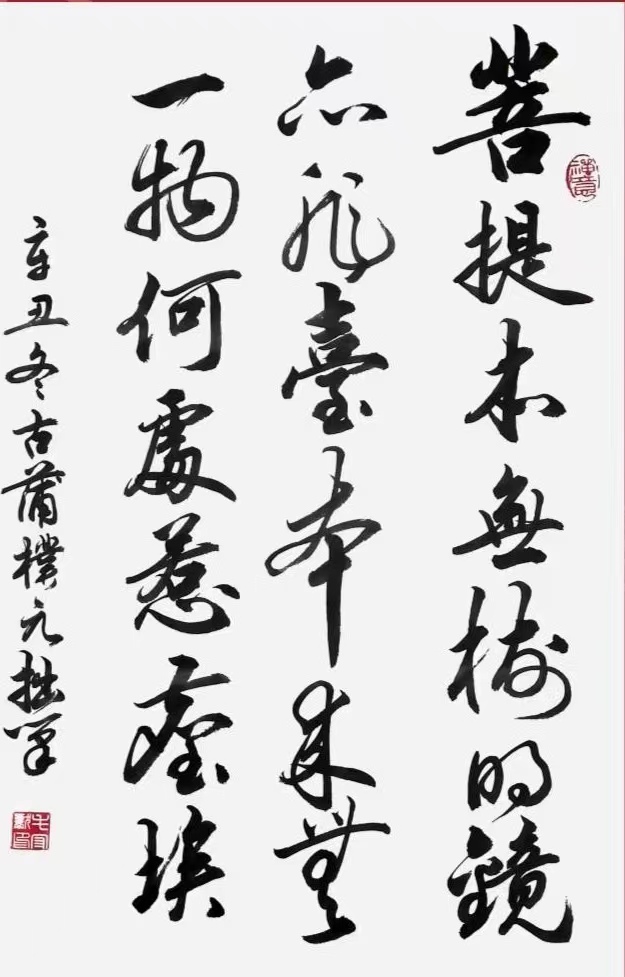 菩提本無樹明鏡
亦非臺本來無
一物何處惹塵埃
辛丑冬古蒲樸元拙筆